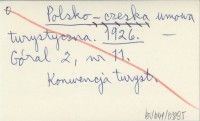 Polsko-czeska umowa
turystyczna. 1926. —
Góral 2, nr 11.
Konwencja turyst.